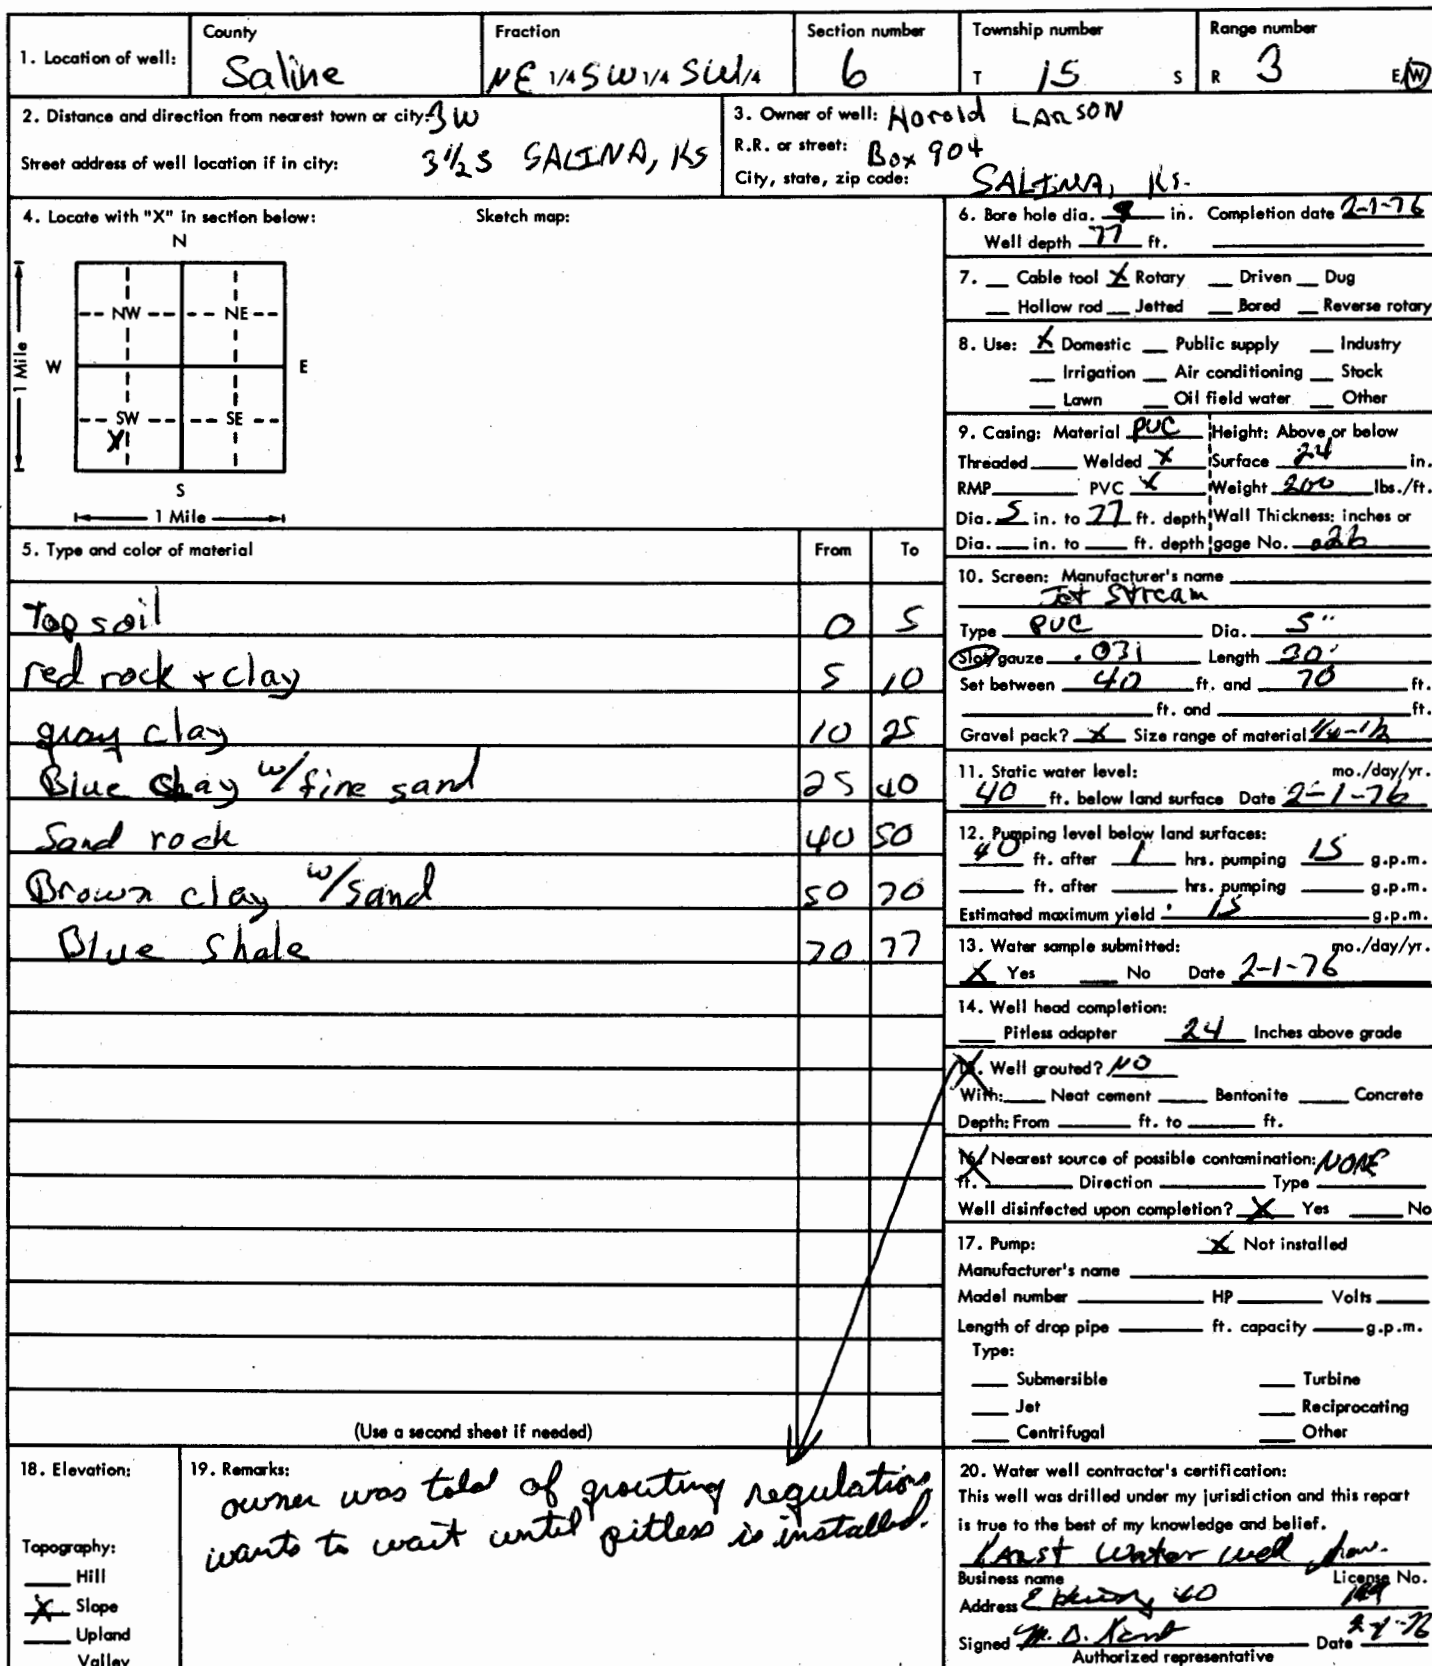 County Fraction Section number Township number Range number
1. Location of well: Saline NE 1/4 SW 1/4 SW 1/4 6 T 15 S R 3 E/W
2. Distance and direction from nearest town or city: 3 W
Street address of well location if in city: 3 1/2 S SALINA, KS
3. Owner of well: Harold LARSON
R.R. or street: Box 904
City, state, zip code: SALINA, KS.
4. Locate with "X" in section below: Sketch map:
N
NW NE
W E
1 Mile
SW SE
X
S
1 Mile
5. Type and color of material From To
Top soil 0 5
red rock + clay 5 10
gray clay 10 25
Blue clay w/fine sand 25 40
Sand rock 40 50
Brown clay w/sand 50 70
Blue Shale 70 77
(Use a second sheet if needed)
6. Bore hole dia. in. Completion date 2-1-76
Well depth 77 ft.
7. Cable tool X Rotary Driven Dug
Hollow rod Jetted Bored Reverse rotary
8. Use: X Domestic Public supply Industry
Irrigation Air conditioning Stock
Lawn Oil field water Other
9. Casing: Material PVC Height: Above or below
Threaded Welded X Surface 24 in.
RMP PVC X Weight 200 lbs./ft.
Dia. 5 in. to 77 ft. depth Wall Thickness: inches or
Dia. in. to ft. depth gage No. .026
10. Screen: Manufacturer's name
Jet Stream
Type PVC Dia. 5"
Slot/gauze .031 Length 30'
Set between 40 ft. and 70 ft.
ft. and ft.
Gravel pack? X Size range of material 1/4-1/2
11. Static water level: mo./day/yr.
40 ft. below land surface Date 2-1-76
12. Pumping level below land surfaces:
40 ft. after 1 hrs. pumping 15 g.p.m.
ft. after hrs. pumping g.p.m.
Estimated maximum yield 15 g.p.m.
13. Water sample submitted: mo./day/yr.
X Yes No Date 2-1-76
14. Well head completion:
Pitless adapter 24 Inches above grade
15. Well grouted? NO
With: Neat cement Bentonite Concrete
Depth: From ft. to ft.
16. Nearest source of possible contamination: NONE
ft. Direction Type
Well disinfected upon completion? X Yes No
17. Pump: X Not installed
Manufacturer's name
Model number HP Volts
Length of drop pipe ft. capacity g.p.m.
Type:
Submersible Turbine
Jet Reciprocating
Centrifugal Other
18. Elevation:
Topography:
Hill
X Slope
Upland
Valley
19. Remarks:
owner was told of grouting regulations
wants to wait until pitless is installed.
20. Water well contractor's certification:
This well was drilled under my jurisdiction and this report
is true to the best of my knowledge and belief.
Water well
Business name License No.
Address
Signed M. D. Date 2-1-76
Authorized representative